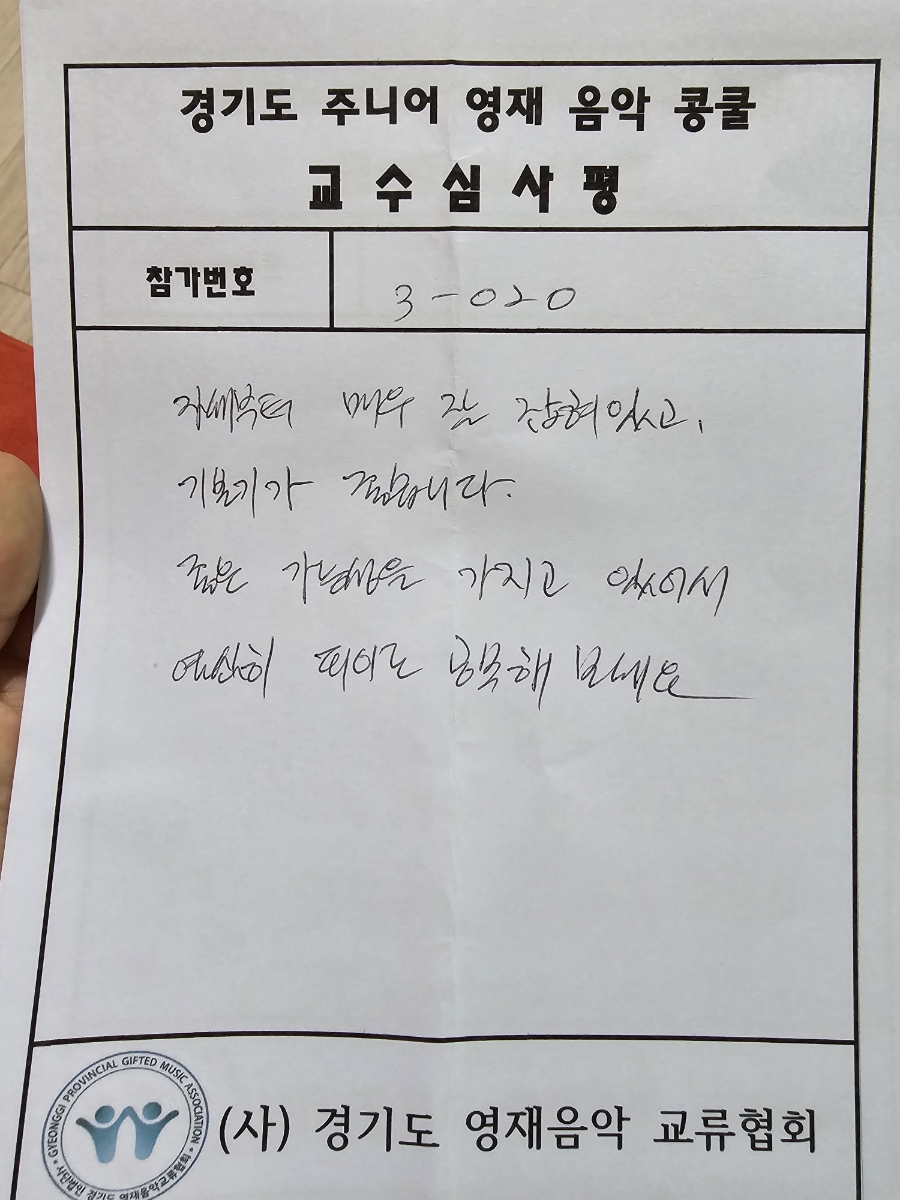 경기도 주니어 영재 음악 콩쿨
교수심사평
참가번호
3-020
자세부터 매우 잘 잡혀있고,
기본기가 좋습니다.
좋은 가능성을 가지고 있어서
열심히 피아노 공부해 보세요
GYEONGGI PROVINCIAL GIFTED MUSIC ASSOCIATION
사단법인 경기도 영재음악교류협회
(사) 경기도 영재음악 교류협회